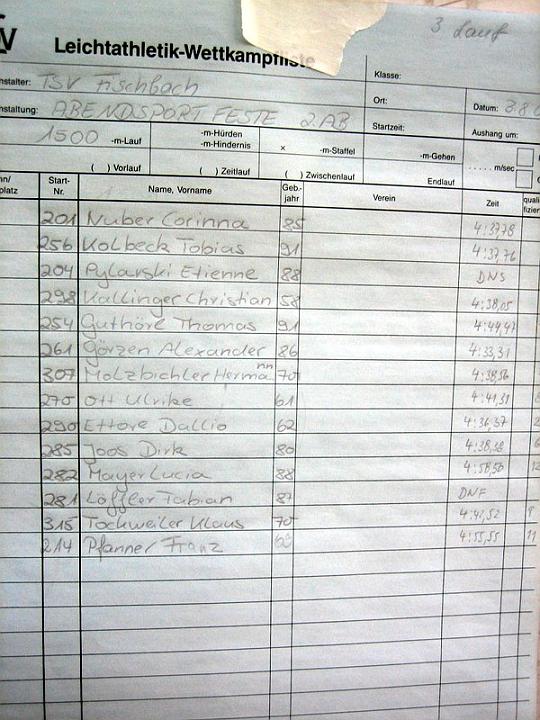 3 Lauf
Leichtathletik-Wettkampfliste
Klasse:
nstalter: TSV Fischbach
Ort:
Datum: 3.8.0
nstaltung: ABENDSPORTFESTE 2.AB
Startzeit:
Aushang um:
1500 -m-Lauf
-m-Hürden
-m-Hindernis
x -m-Staffel
-m-Gehen
m/sec
( ) Vorlauf ( ) Zeitlauf ( ) Zwischenlauf Endlauf
Start-Nr. Name, Vorname Geb.-jahr Verein Zeit
201 Nuber Corinna 85 4:37,78
256 Kolbeck Tobias 91 4:37,76
204 Pylarski Etienne 88 DNS
298 Kallinger Christian 58 4:38,05
254 Guthörl Thomas 91
261 Görzen Alexander 86 4:33,31
307 Holzbichler Hermann 70
270 Ott Ulrike 61 4:41,31
290 Ettore Dallio 62 4:36,37
285 Joos Dirk 80
282 Mayer Lucia 88 4:58,50
281 Löffler Fabian 87 DNF
315 Tochweiler Klaus 70 4:41,52
214 Pfanner Franz 4:55,55 11